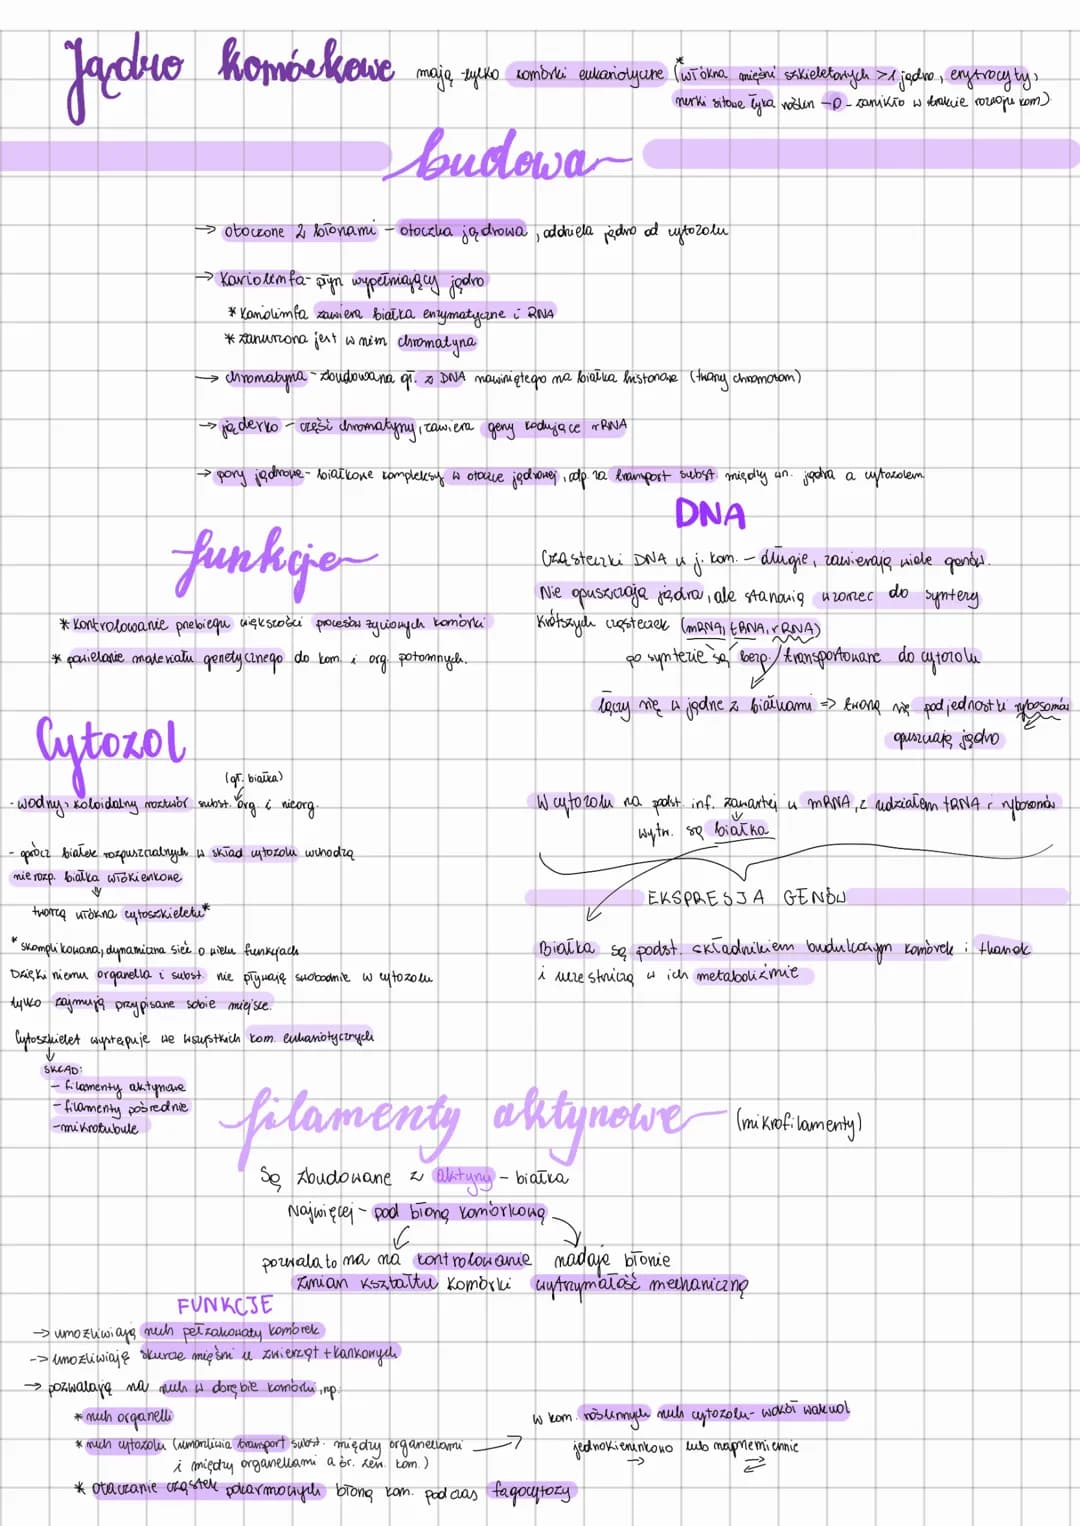 Jądro komórkowe mają tylko komórki eukariotyczne (włókna mięśni szkieletowych >1 jądro, erytrocyty,
rurki sitowe łyka roślin -0- zanikło w trakcie rozwoju kom)
budowa
→ otoczone 2 błonami - otoczka jądrowa, oddziela jądro od cytozolu
→ Kariolimfa - płyn wypełniający jądro
* Kariolimfa zawiera białka enzymatyczne i RNA
* zanurzona jest w nim chromatyna
→ chromatyna - zbudowana gł. z DNA nawiniętego na białka histonowe (tworzy chromosom)
→ jąderko - część chromatyny, zawiera geny kodujące rRNA
→ pory jądrowe - białkowe kompleksy w otoczce jądrowej, odp. za transport subst. między wn. jądra a cytozolem
funkcje
* Kontrolowanie przebiegu większości procesów życiowych komórki
* powielanie materiału genetycznego do kom. i org. potomnych.
DNA
Cząsteczki DNA w j. kom. - długie, zawierają wiele genów.
Nie opuszczają jądra, ale stanowią wzorzec do syntezy
krótszych cząsteczek (mRNA, tRNA, rRNA)
po syntezie są bezp. transportowane do cytozolu
łączy się w jądrze z białkami => tworzą się podjednostki rybosomów
opuszczają jądro
W cytozolu na podst. inf. zawartej w mRNA, z udziałem tRNA i rybosomów
wytw. są białka
EKSPRESJA GENÓW
Białka są podst. składnikiem budulcowym komórek i tkanek
i uczestniczą w ich metabolizmie
Cytozol
(gł. białka)
- wodny, koloidalny roztwór subst. org. i nieorg.
- oprócz białek rozpuszczalnych w skład cytozolu wchodzą
nierozp. białka włókienkowe
tworzą włókna cytoszkieletu*
* skomplikowana, dynamiczna sieć o wielu funkcjach
Dzięki niemu organella i subst. nie pływają swobodnie w cytozolu
tylko zajmują przypisane sobie miejsce.
Cytoszkielet występuje we wszystkich kom. eukariotycznych
SKŁAD:
- filamenty aktynowe
- filamenty pośrednie
- mikrotubule
filamenty aktynowe (mikrofilamenty)
Są zbudowane z aktyny - białka
Najwięcej - pod błoną komórkową
pozwala to na na kontrolowanie nadaje błonie
zmian kształtu komórki wytrzymałość mechaniczną
FUNKCJE
→ umożliwiają ruch pełzakowaty komórek
→ umożliwiają skurcze mięśni u zwierząt tkankowych
→ pozwalają na ruch w obrębie komórki, np.
* ruch organelli
* ruch cytozolu (umożliwia transport subst. między organellami → w kom. roślinnych ruch cytozolu - wokół wakuol
i między organellami a śr. zew. kom.) jednokierunkowo lub naprzemiennie
* otaczanie cząstek pokarmowych błoną kom. podczas fagocytozy